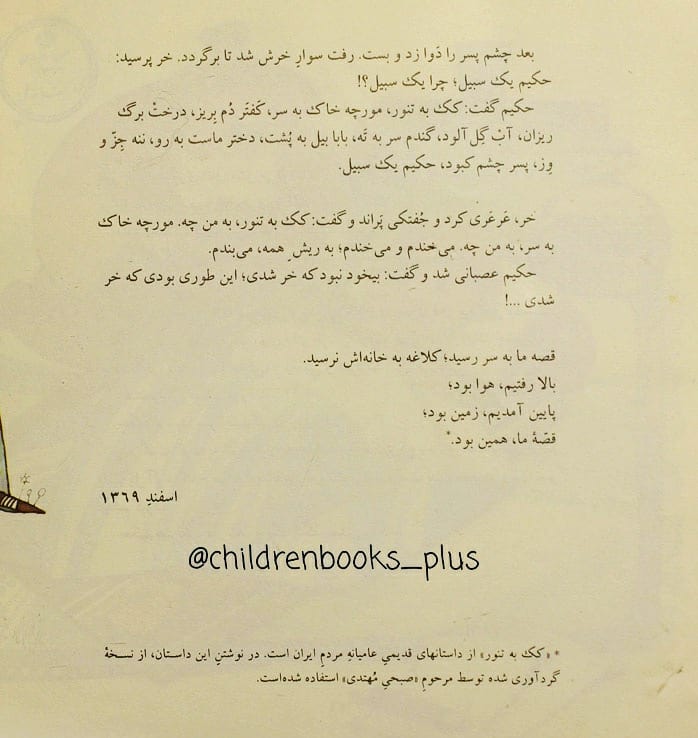 بعد چشم پسر را دَوا زد و بست. رفت سوارِ خرش شد تا برگردد. خر پرسید:
حکیم یک سبیل؛ چرا یک سبیل؟!
حکیم گفت: کک به تنور، مورچه خاک به سر، کَفتَر دُم بِریز، درختْ برگ
ریزان، آبْ گِل آلود، گندم سر به تَه، بابا بیل به پُشت، دختر ماست به رو، ننه جِزّ و
وِز، پسر چشم کبود، حکیم یک سبیل.
خر، عَرعَری کرد و جُفتکی پَراند و گفت: کک به تنور، به من چه. مورچه خاک
به سر، به من چه. می‌خندم و می‌خندم؛ به ریشِ همه، می‌بندم.
حکیم عصبانی شد و گفت: بیخود نبود که خر شدی؛ این طوری بودی که خر
شدی ...!
قصه ما به سر رسید؛ کلاغه به خانه‌اش نرسید.
بالا رفتیم، هوا بود؛
پایین آمدیم، زمین بود؛
قصّهٔ ما، همین بود.*
اسفندِ ۱۳۶۹
@childrenbooks_plus
* «کک به تنور» از داستانهای قدیمیِ عامیانهِ مردمِ ایران است. در نوشتنِ این داستان، از نسخهٔ
گردآوری شده توسط مرحومِ «صبحیِ مُهتدی» استفاده شده‌است.